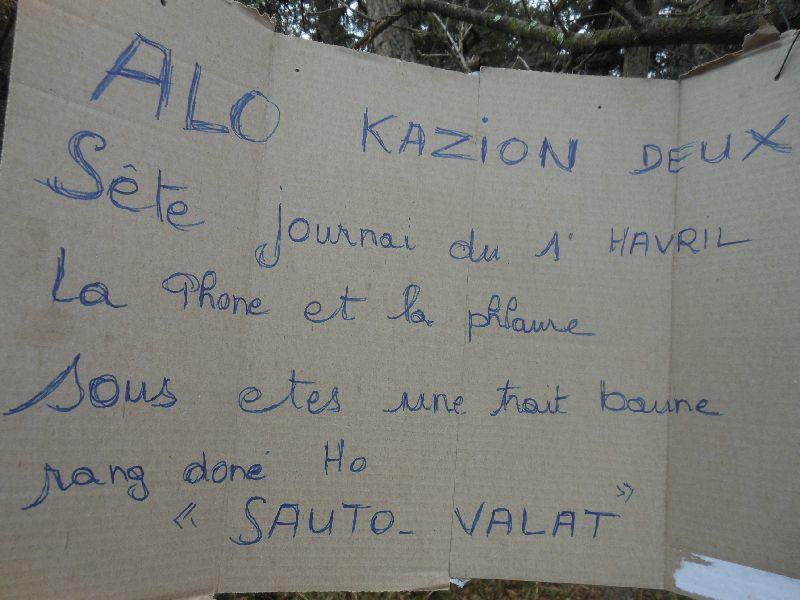 ALO KAZION DEUX
Sête journai du 1° HAVRIL
La Phone et la phlaure
Sous etes une trait baune
rang doné Ho
« SAUTO_ VALAT »